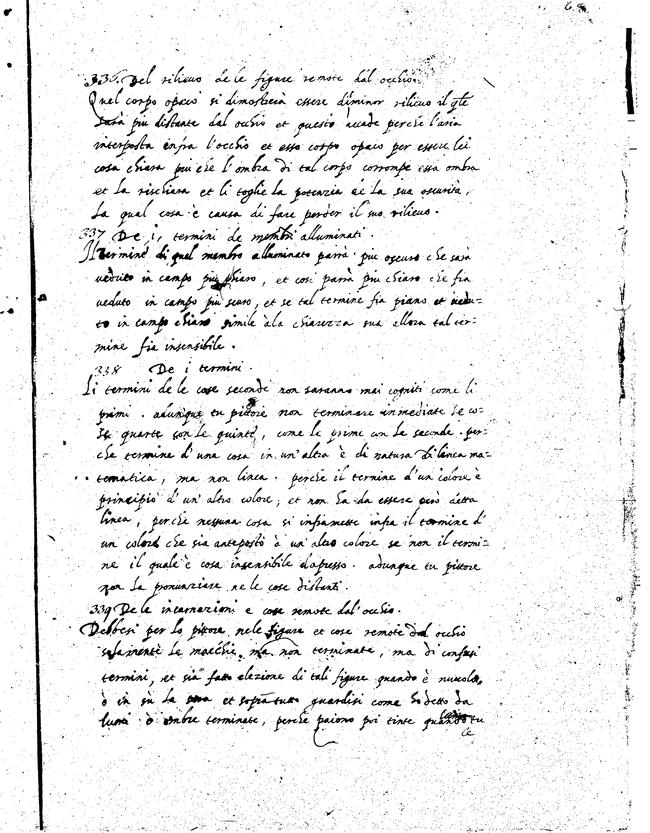 68
336. Del rilieuo de le figure remote dal occhio.
Quel corpo opaco si dimostrerà essere diminor rilieuo il qle
sarà piu distante dal ochio et questo accade perche l'aria
interposta enfra l'occhio et esso corpo opaco per essere lei
cosa chiara piu che l'ombra di tal corpo corrompe essa ombra
et la rischiara et li toglie la potenzia de la sua oscurità,
la qual cosa è causa di fare perder il suo rilieuo.
337 De i, termini de membri alluminati.
Il termine di quel membro alluminato parrà piu oscuro che sarà
ueduto in campo piu chiaro, et cosi parrà piu chiaro che fia
ueduto in campo piu scuro, et se tal termine fia piano et uedu=
to in campo chiaro simile ala chiarezza sua allora tal ter=
mine fia insensibile.
338 De i termini.
Li termini de le cose seconde non saranno mai cogniti come li
primi. adunque tu pittore non terminare inmediate le co=
se quarte con le quinte, come le prime con le seconde. per=
che termine d'una cosa in un'altra è di natura di linea ma=
tematica, ma non linea. perche il termine d'un colore è
principio d'un'altro colore, et non ha da essere però detta
linea, perche nessuna cosa si inframette infra il termine d'
un colore che sia anteposto à un'altro colore se non il termi=
ne il quale è cosa insensibile dapresso. adunque tu pittore
non la pronunziare nele cose distanti.
339 De le incarnazioni e cose remote dal'occhio.
Debbesi per lo pittore nele figure et cose remote dal occhio
solamente le macchie, ma non terminate, ma di confusi
termini, et sia fatto elezione di tali figure quando è nuuolo,
ò in sù la sera et sopra tutto guardisi come hò detto da
lumi ò ombre terminate, perche paiono poi tinte quando tu
le